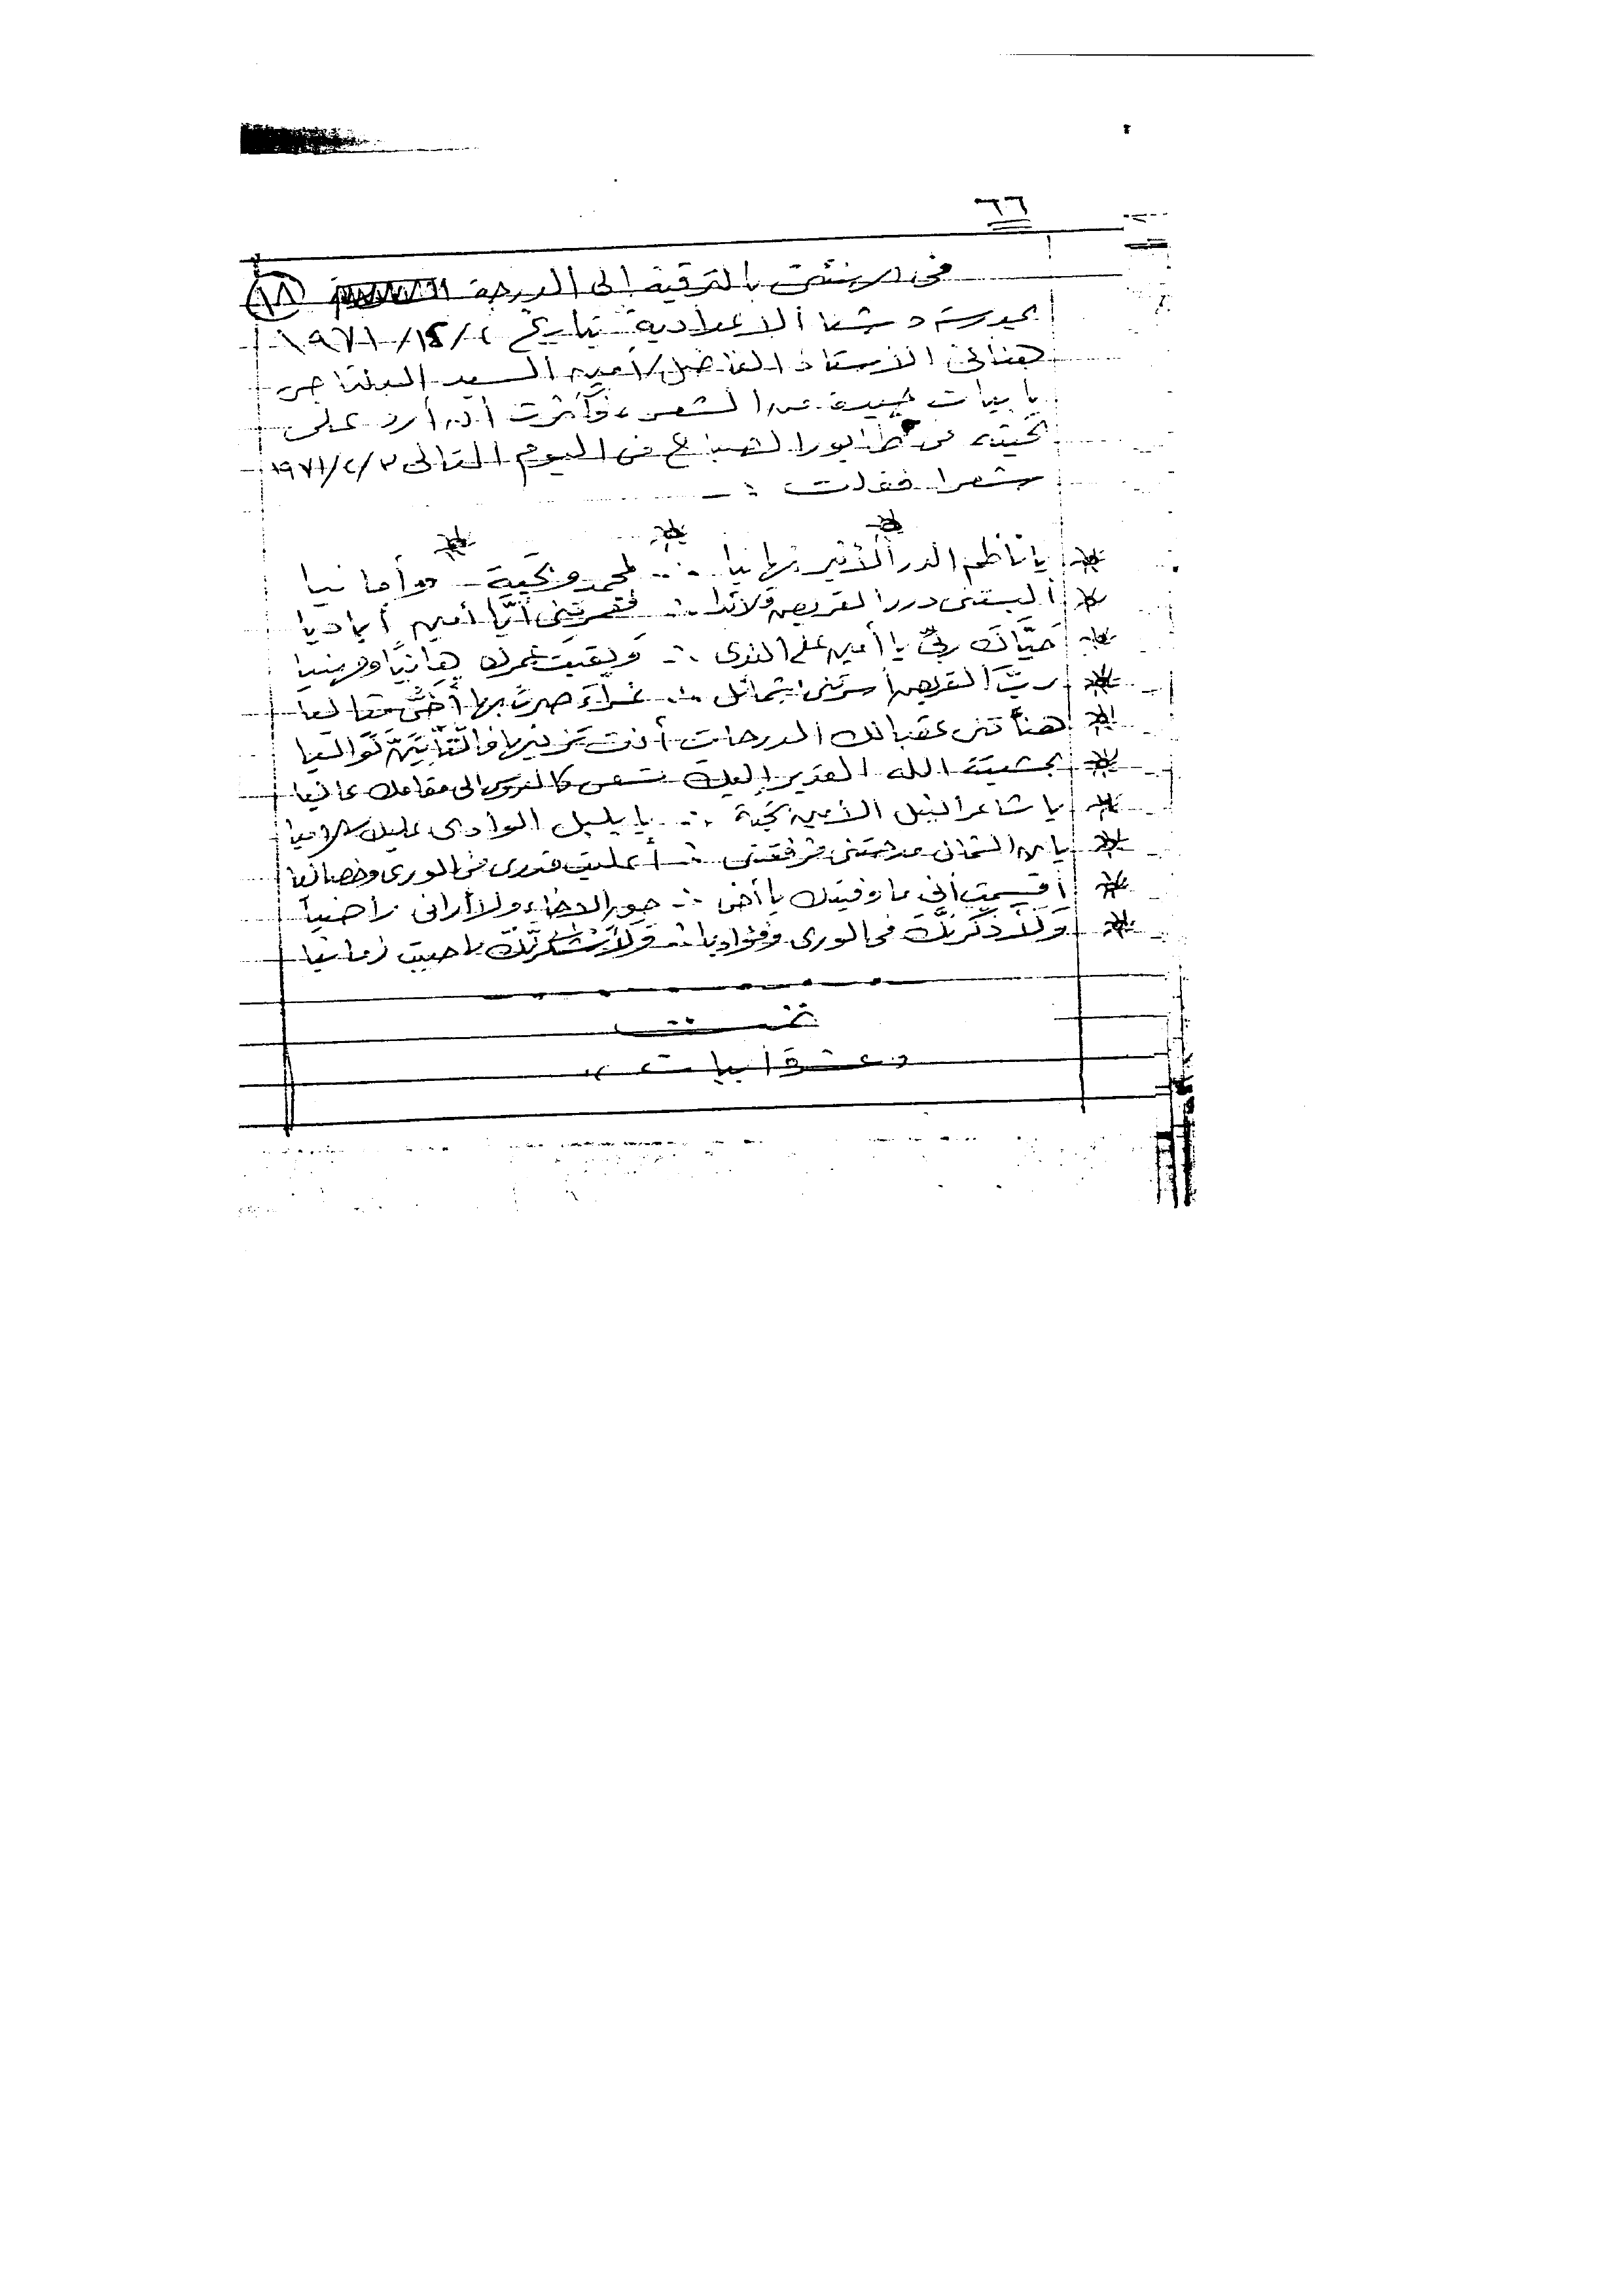 ٦٦
فى تهنئتى بالترقية إلى الدرجة ١٨
بمدرسة دشنا الإعدادية بتاريخ ١٩٧١
هنأنى الأستاذ الفاضل / أمين السيد البلتاجى
بأبيات جيدة من الشعر، فآثرت أن أرد على
تحيته فى طابور الصباح فى اليوم التالى ١٩٧١/٢/٣
شعرا فقلت :-
يا ناظم الدر الأثير تهانيا ∴ لمحمد وتحية وأمانيا
ألبستنى درر القريض قلائدا ∴ فغمرتنى أيا أمين أياديا
حيَّاك ربى يا أمين على الندى ∴ وبقيت عمرك هانيًا
ربَّ القريض أسرتنى بشمائل ∴ غراء صرت بها أخى
هنأتنى عقبالك الدرجات أنت تواليا
بمشيئة الله القدير إليك تسعى كالعروس إلى مقامك عاليا
يا شاعر النيل الأمين تحية ∴ يا بلبل الوادى عليك سلاميا
يا بن مدحتنى فرفعتنى ∴ أعليت قدرى فى الورى
أقسمت أنى ما وفيتك يا أخى ∴ الإخاء ولا أرانى راضيا
ولأذكرنَّك فى الورى وفؤاديا ∴ ولأشكرنَّك ما حييت زمانيا
تمت
« عشرة أبيات »